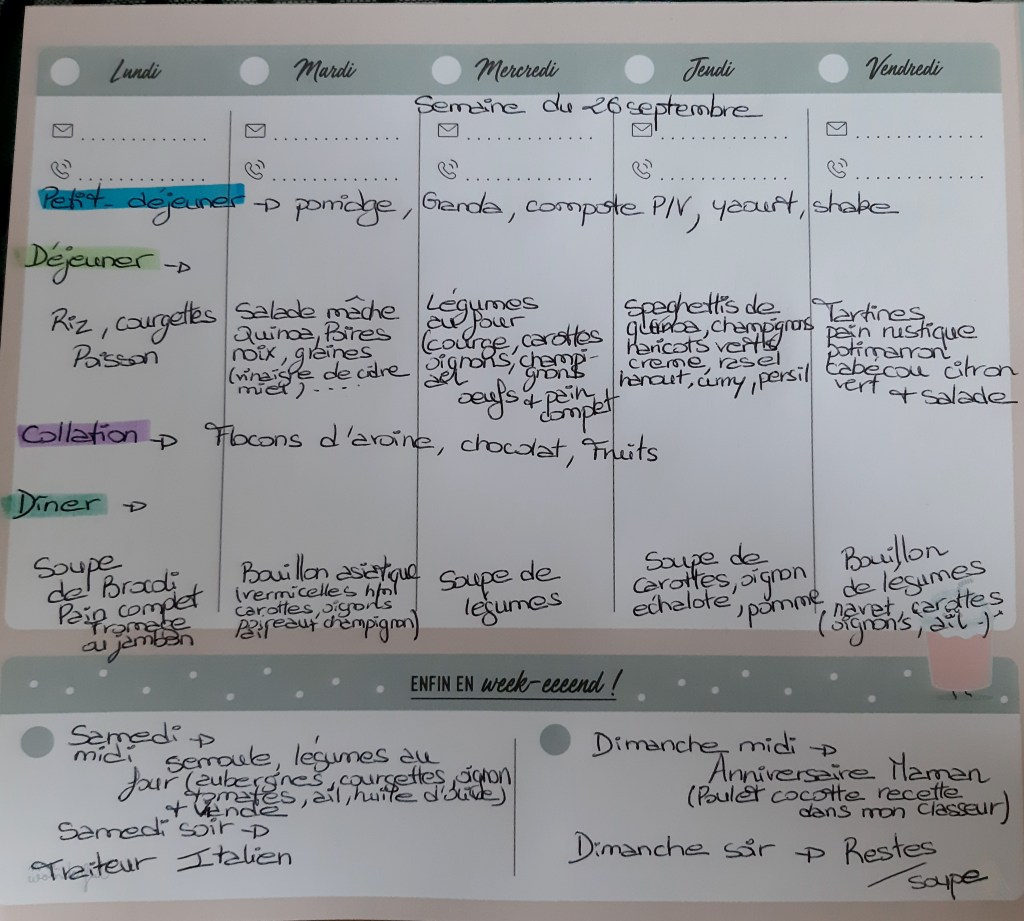 Lundi
Mardi
Mercredi
Jeudi
Vendredi
Semaine du 26 septembre
Petit-déjeuner → porridge, Granola, compote P/V, yaourt, shake
Déjeuner →
Riz, courgettes
Poisson
Salade mâche
Quinoa, Poires
noix, graines
(vinaigre de cidre
miel, ....
Légumes
au four
(courge, carottes
oignons, champi-
gnons
oeufs + pain
complet
Spaghettis de
champignons
haricots verts
creme, rasel
hanout, curry, persil
Tartines
pain rustique
potimarron
cabécou citron
vert + salade
Collation → Flocons d'avoine, chocolat, Fruits
Dîner →
Soupe
de Brocoli
Pain complet
Fromage
ou jambon
Bouillon asiatique
(vermicelles
carottes, oignons
poireaux champignon)
Soupe de
légumes
Soupe de
carottes, oignon
echalote, pomme
Bouillon
de légumes
(navet, carottes
oignons, ail -)
ENFIN EN week-eeeend !
Samedi →
midi semoule, légumes au
four (aubergines, courgettes, oignon
tomates, ail, huile d'olive)
+ viande
Samedi soir →
Traiteur Italien
Dimanche midi →
Anniversaire Maman
(Poulet cocotte recette
dans mon classeur)
Dimanche soir → Restes
/soupe